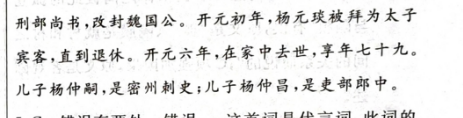 刑部尚书,改封魏国公。开元初年,杨元琰被拜为太子
宾客,直到退休。开元六年,在家中去世,享年七十九。
儿子杨仲嗣,是密州刺史;儿子杨仲昌,是吏部郎中。